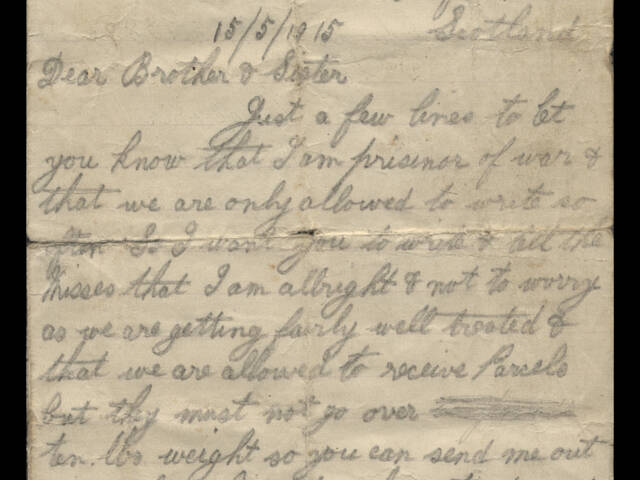 15/5/1915 Scotland
Dear Brother & Sister
Just a few lines to let
you know that I am prisinor of war &
that we are only allowed to write so
often So I want you to write & tell the
Misses that I am allright & not to worry
as we are getting fairly well treated &
that we are allowed to receive Parcels
but they must not go over
ten lbs weight so you can send me out